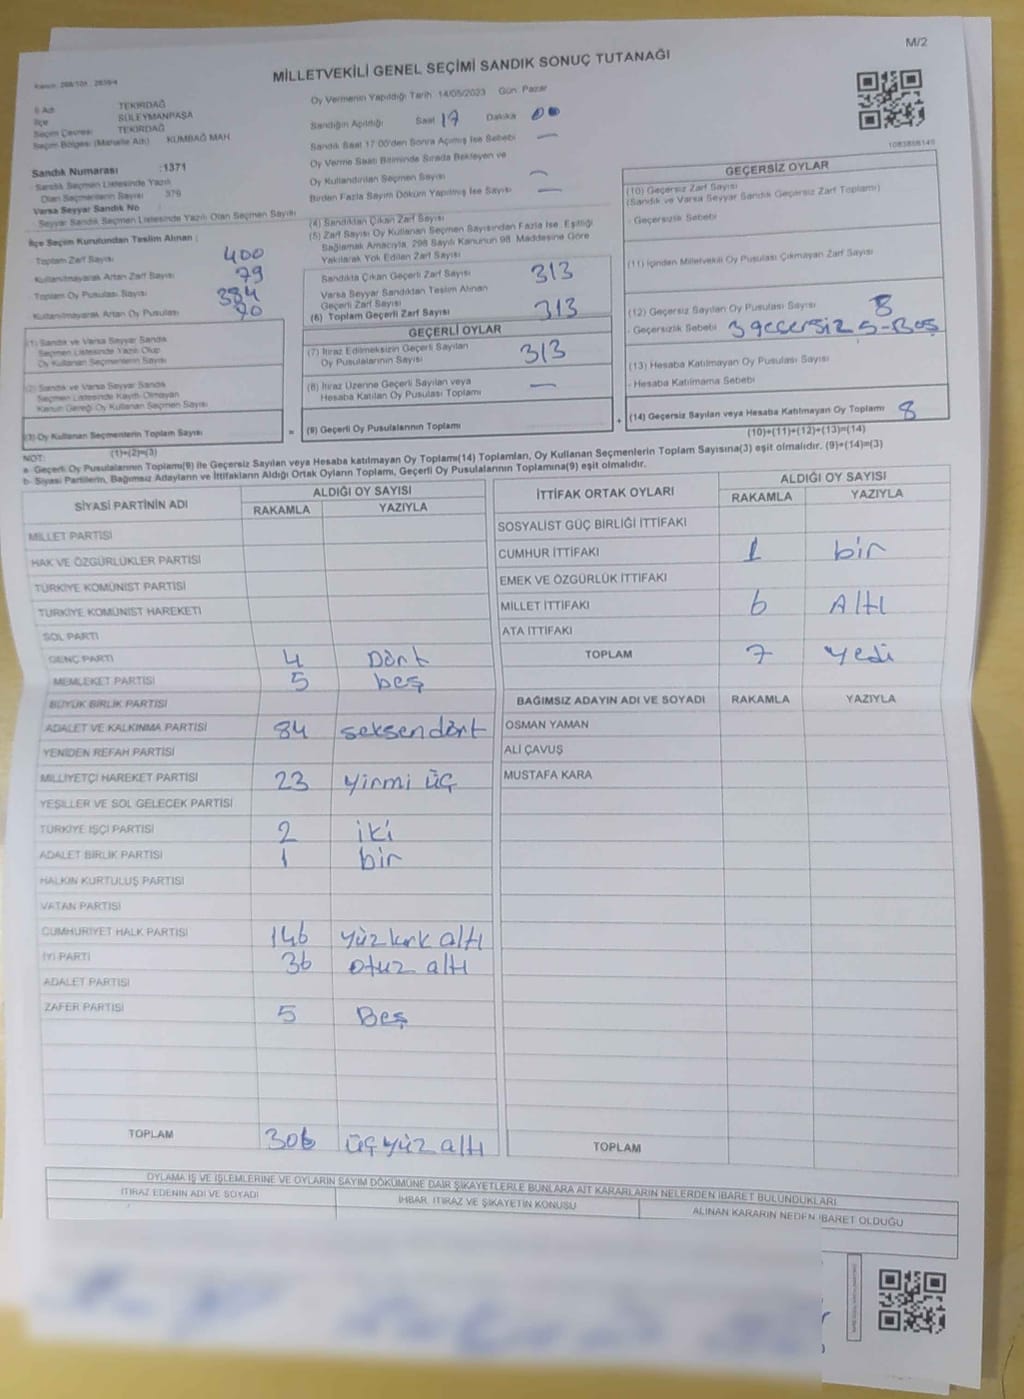 M/2
MİLLETVEKİLİ GENEL SEÇİMİ SANDIK SONUÇ TUTANAĞI
İl Adı TEKİRDAĞ
İlçe SÜLEYMANPAŞA
Seçim Çevresi TEKİRDAĞ
Seçim Bölgesi (Mahalle Adı) KUMBAĞ MAH
Sandık Numarası :1371
Sandık Seçmen Listesinde Yazılı
Olan Seçmenlerin Sayısı 379
Varsa Seyyar Sandık No
Seyyar Sandık Seçmen Listesinde Yazılı Olan Seçmen Sayısı
İlçe Seçim Kurulundan Teslim Alınan :
Toplam Zarf Sayısı 400
Kullanılmayarak Artan Zarf Sayısı 79
Toplam Oy Pusulası Sayısı 384
Kullanılmayarak Artan Oy Pusulası 70
(1) Sandık ve Varsa Seyyar Sandık
Seçmen Listesinde Yazılı Olup
Oy Kullanan Seçmenlerin Sayısı
(2) Sandık ve Varsa Seyyar Sandık
Seçmen Listesinde Kayıtlı Olmayan
Kanun Gereği Oy Kullanan Seçmen Sayısı
(3) Oy Kullanan Seçmenlerin Toplam Sayısı
(1)+(2)=(3)
Oy Vermenin Yapıldığı Tarih :14/05/2023 Gün: Pazar
Sandığın Açıldığı Saat 17 Dakika 00
Sandık Saat 17:00'den Sonra Açılmış İse Sebebi —
Oy Verme Saati Bitiminde Sırada Bekleyen ve
Oy Kullandırılan Seçmen Sayısı —
Birden Fazla Sayım Döküm Yapılmış İse Sayısı —
(4) Sandıktan Çıkan Zarf Sayısı
(5) Zarf Sayısı Oy Kullanan Seçmen Sayısından Fazla İse, Eşitliği
Sağlamak Amacıyla, 298 Sayılı Kanunun 98. Maddesine Göre
Yakılarak Yok Edilen Zarf Sayısı
Sandıkta Çıkan Geçerli Zarf Sayısı 313
Varsa Seyyar Sandıktan Teslim Alınan
Geçerli Zarf Sayısı
(6) Toplam Geçerli Zarf Sayısı 313
GEÇERLİ OYLAR
(7) İtiraz Edilmeksizin Geçerli Sayılan
Oy Pusulalarının Sayısı 313
(8) İtiraz Üzerine Geçerli Sayılan veya
Hesaba Katılan Oy Pusulası Toplamı —
= (9) Geçerli Oy Pusulalarının Toplamı
GEÇERSİZ OYLAR
(10) Geçersiz Zarf Sayısı
(Sandık ve Varsa Seyyar Sandık Geçersiz Zarf Toplamı)
- Geçersizlik Sebebi
(11) İçinden Milletvekili Oy Pusulası Çıkmayan Zarf Sayısı
(12) Geçersiz Sayılan Oy Pusulası Sayısı 8
- Geçersizlik Sebebi 3 geçersiz 5-Boş
(13) Hesaba Katılmayan Oy Pusulası Sayısı
- Hesaba Katılmama Sebebi
+ (14) Geçersiz Sayılan veya Hesaba Katılmayan Oy Toplamı 8
(10)+(11)+(12)+(13)=(14)
NOT:
a- Geçerli Oy Pusulalarının Toplamı(9) ile Geçersiz Sayılan veya Hesaba katılmayan Oy Toplamı(14) Toplamları, Oy Kullanan Seçmenlerin Toplam Sayısına(3) eşit olmalıdır. (9)+(14)=(3)
b- Siyasi Partilerin, Bağımsız Adayların ve İttifakların Aldığı Ortak Oyların Toplamı, Geçerli Oy Pusulalarının Toplamına(9) eşit olmalıdır.
SİYASİ PARTİNİN ADI ALDIĞI OY SAYISI
RAKAMLA YAZIYLA
MİLLET PARTİSİ
HAK VE ÖZGÜRLÜKLER PARTİSİ
TÜRKİYE KOMÜNİST PARTİSİ
TÜRKİYE KOMÜNİST HAREKETİ
SOL PARTİ
GENÇ PARTİ 4 Dört
MEMLEKET PARTİSİ 5 beş
BÜYÜK BİRLİK PARTİSİ
ADALET VE KALKINMA PARTİSİ 84 seksendört
YENİDEN REFAH PARTİSİ
MİLLİYETÇİ HAREKET PARTİSİ 23 yirmi üç
YEŞİLLER VE SOL GELECEK PARTİSİ
TÜRKİYE İŞÇİ PARTİSİ 2 iki
ADALET BİRLİK PARTİSİ 1 bir
HALKIN KURTULUŞ PARTİSİ
VATAN PARTİSİ
CUMHURİYET HALK PARTİSİ 146 yüz kırk altı
İYİ PARTİ 36 otuz altı
ADALET PARTİSİ
ZAFER PARTİSİ 5 Beş
TOPLAM 306 üçyüz altı
İTTİFAK ORTAK OYLARI ALDIĞI OY SAYISI
RAKAMLA YAZIYLA
SOSYALİST GÜÇ BİRLİĞİ İTTİFAKI
CUMHUR İTTİFAKI 1 bir
EMEK VE ÖZGÜRLÜK İTTİFAKI
MİLLET İTTİFAKI 6 Altı
ATA İTTİFAKI
TOPLAM 7 yedi
BAĞIMSIZ ADAYIN ADI VE SOYADI RAKAMLA YAZIYLA
OSMAN YAMAN
ALİ ÇAVUŞ
MUSTAFA KARA
TOPLAM
OYLAMA İŞ VE İŞLEMLERİNE VE OYLARIN SAYIM DÖKÜMÜNE DAİR ŞİKAYETLERLE BUNLARA AİT KARARLARIN NELERDEN İBARET BULUNDUKLARI
İTİRAZ EDENİN ADI VE SOYADI İHBAR, İTİRAZ VE ŞİKAYETİN KONUSU ALINAN KARARIN NEDEN İBARET OLDUĞU